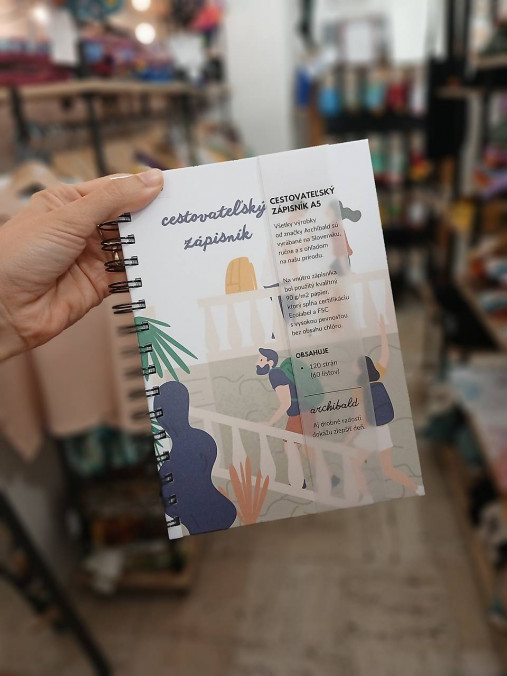 cestovateľský
zápisník
CESTOVATEĽSKÝ
ZÁPISNÍK A5
Všetky výrobky
od značky Archibald sú
vyrábané na Slovensku,
ručne a s ohľadom
na našu prírodu.
Na vnútro zápisníka
bol použitý kvalitný
90 g/m2 papier,
ktorý spĺňa certifikáciu
Ecolabel a FSC
s vysokou pevnosťou
bez obsahu chlóru.
OBSAHUJE
• 120 strán
(60 listov)
archibald
Aj drobné radosti
dokážu zlepšiť deň.